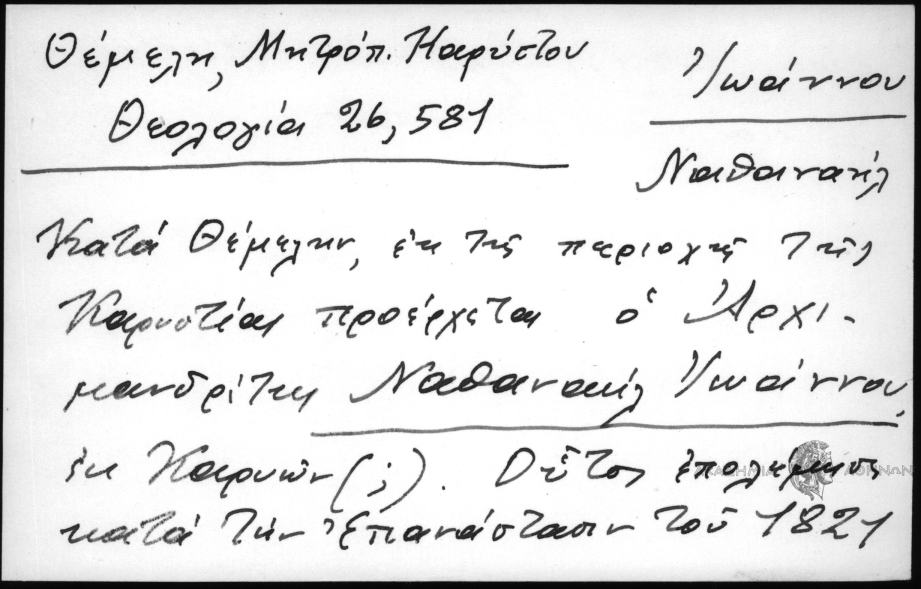 Θέμελη, Μητρόπ. Καρύστου
Θεολογία 26, 581
Ἰωάννου
Ναθαναήλ
Κατά Θέμελην, ἐκ τῆς περιοχῆς τῆς
Καρυστίας προέρχεται ὁ Ἀρχι-
μανδρίτης Ναθαναήλ Ἰωάννου,
ἐκ Καρυῶν (;). Οὗτος ἐπολέμησε
κατά τήν Ἐπανάστασιν τοῦ 1821
ΑΚΑΔΗΜΙΑ ΑΘΗΝΩΝ